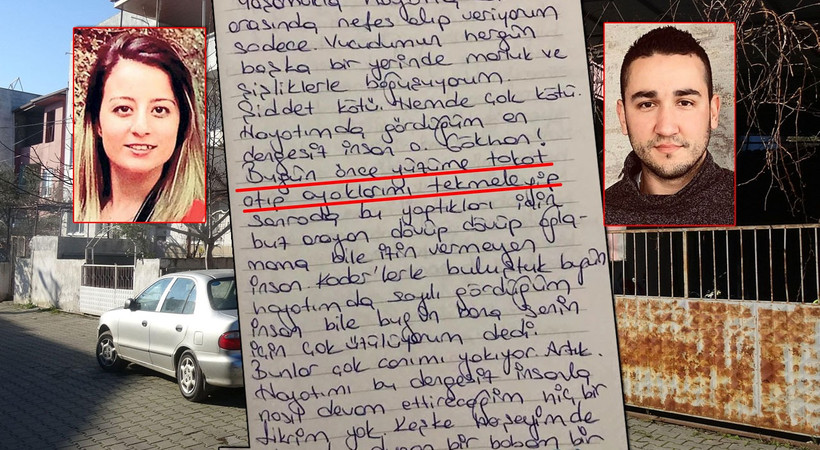 arasında nefes alıp veriyorum
sadece. Vucudumun hergün
başka bir yerinde morluk ve
şişliklerle boğuşuyorum.
Şiddet kötü. Hemde çok kötü.
Hayatımda gördüğüm en
dengesiz insan o. Gökhan!
Bugün önce yüzüme tokat
atıp ayaklarımı tekmeleyip
sonrada bu yaptıkları için
buz arayan dövüp dövüp ağla-
mama bile izin vermeyen
insan. Kader'lerle buluştuk bugün
hayatımda sayılı gördüğüm
insan bile bugün bana senin
için çok üzülüyorum dedi.
Bunlar çok canımı yakıyor. Artık.
Hayatımı bu dengesiz insanla
nasıl devam ettireceğim hiç bir
fikrim yok keşke herşeyimde
bir babam bir